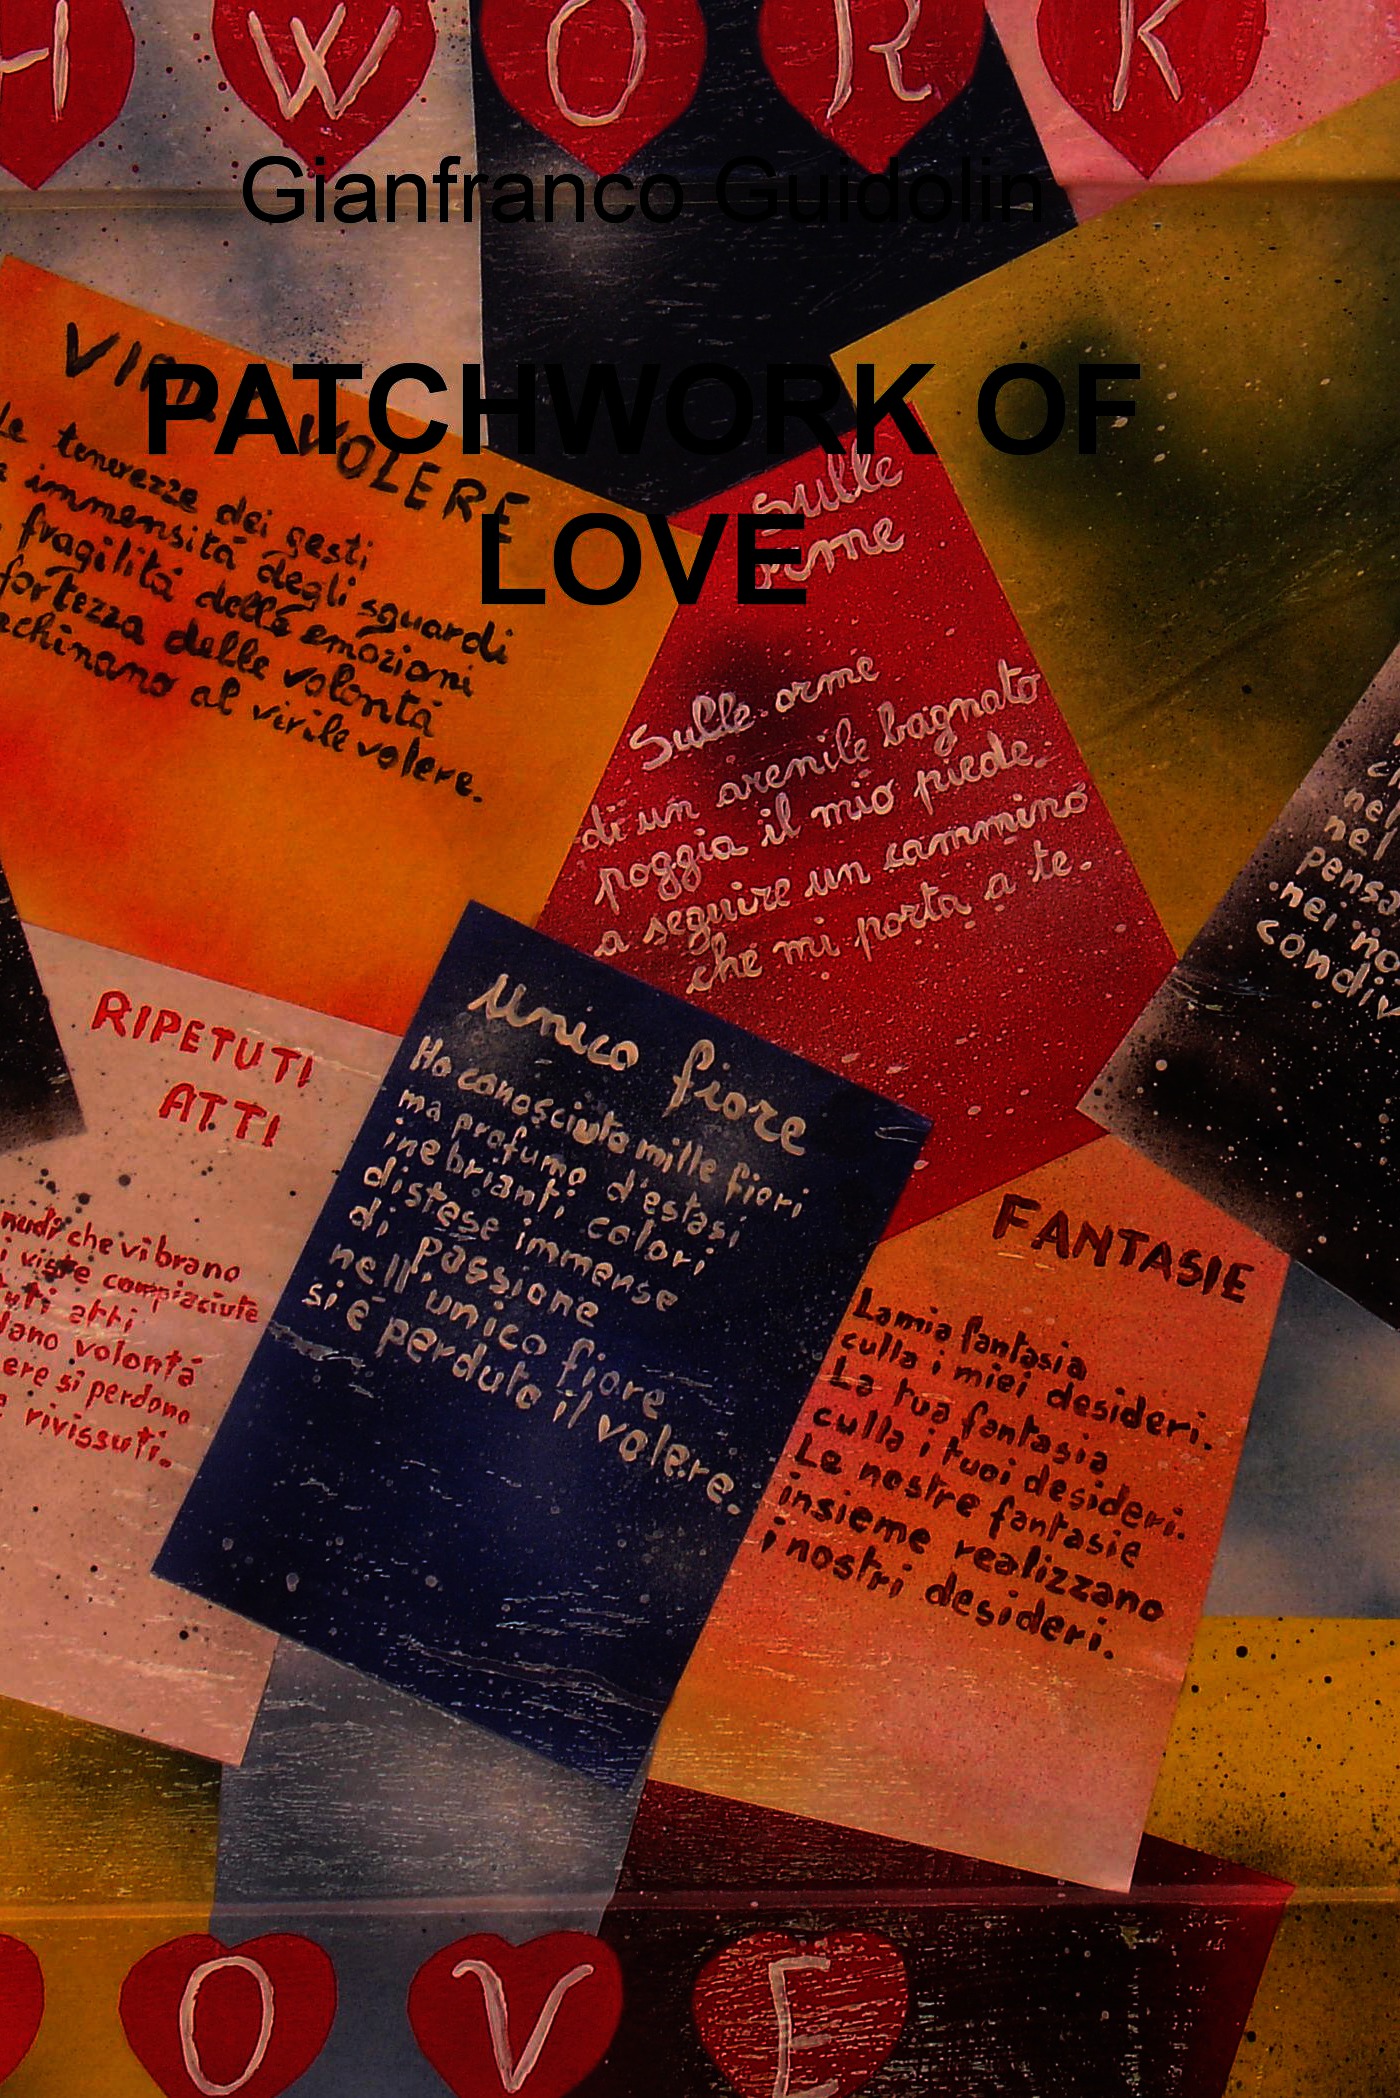 H W O R K
Gianfranco Guidolin
PATCHWORK OF
LOVE
VIRILE VOLERE
Le tenerezze dei gesti
immensitá degli sguardi
fragilitá delle emozioni
fortezza delle volontá
al virile volere.
Sulle
orme
Sulle orme
di un arenile bagnato
poggia il mio piede
a seguire un cammino
che mi porta a te.
nel
nel
nei
condiv
RIPETUTI
ATTI
nudi che vibrano
viste compiaciute
atti
volontá
si perdono
rivissuti.
Unico fiore
Ho conosciuto mille fiori
ma profumo d'estasi
inebrianti colori
distese immense
di passione
nell'unico fiore
si é perduto il volere.
FANTASIE
La mia fantasia
culla i miei desideri.
La tua fantasia
culla i tuoi desideri.
Le nostre fantasie
insieme realizzano
i nostri desideri.
O V E